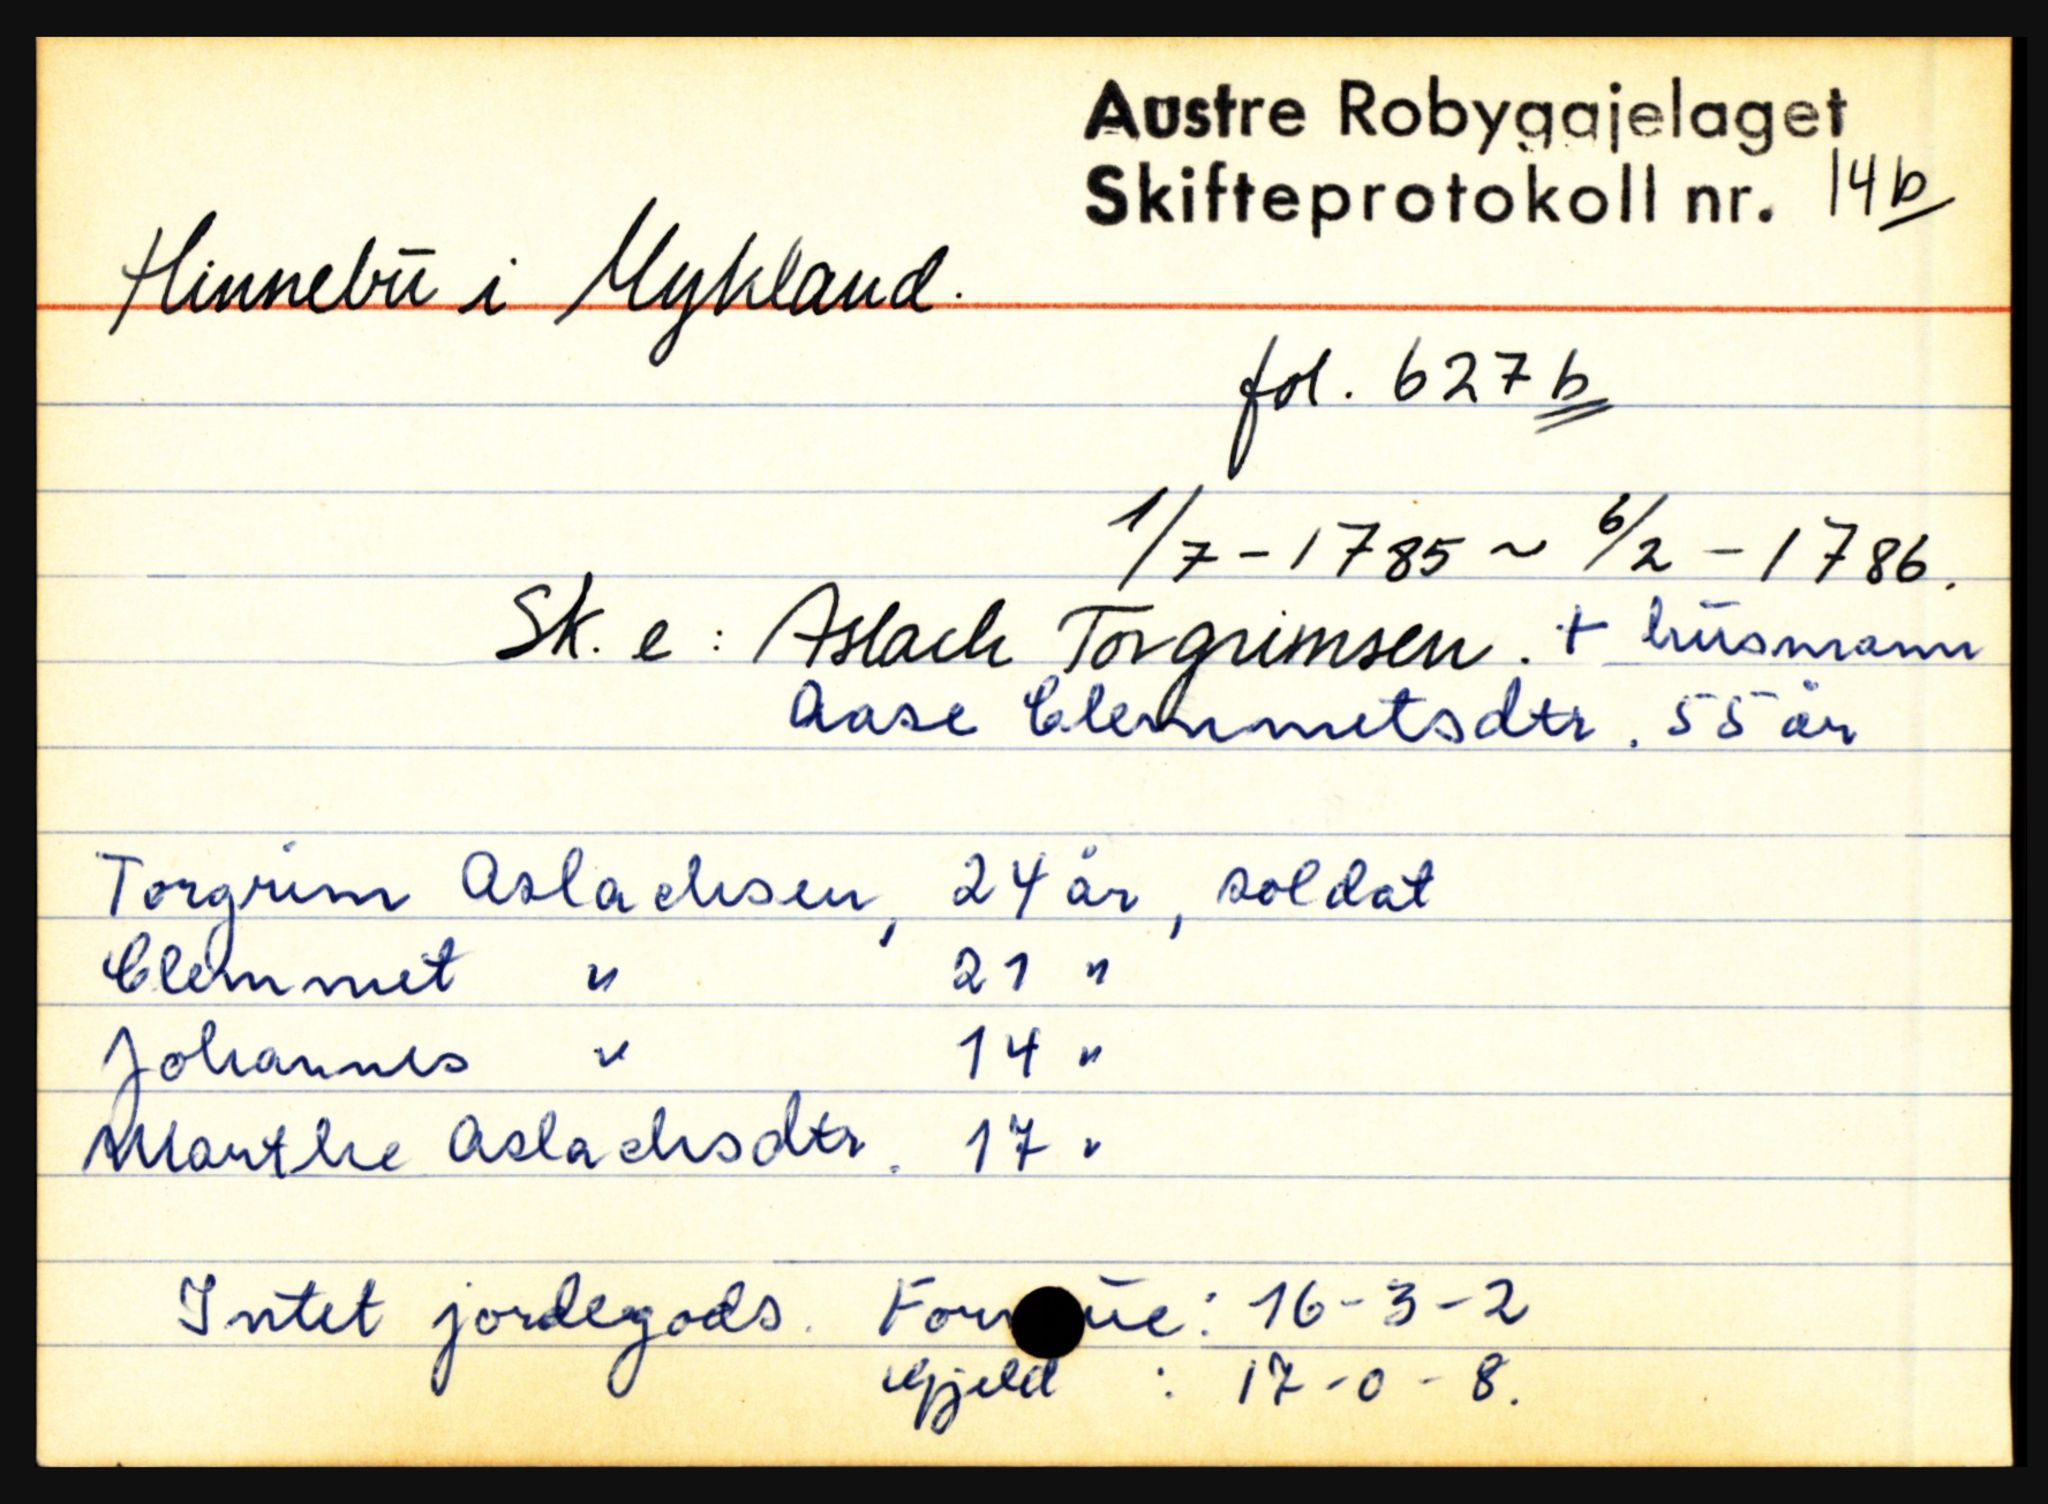 Austre Robygdjelaget
Skifteprotokoll nr. 14b
Hinnebu i Mykland.
fol. 627b
1/7-1785 ~ 6/2-1786.
Sk. e: Aslach Torgrimsen. + husmann
Aase Clemmetsdtr. 55 år
Torgrim Aslachsen, 24 år, soldat
Clemmet " 21 "
Johannes " 14 "
Marthe Aslachsdtr. 17 "
Intet jordegods. Formue: 16-3-2
Gjeld : 17-0-8.